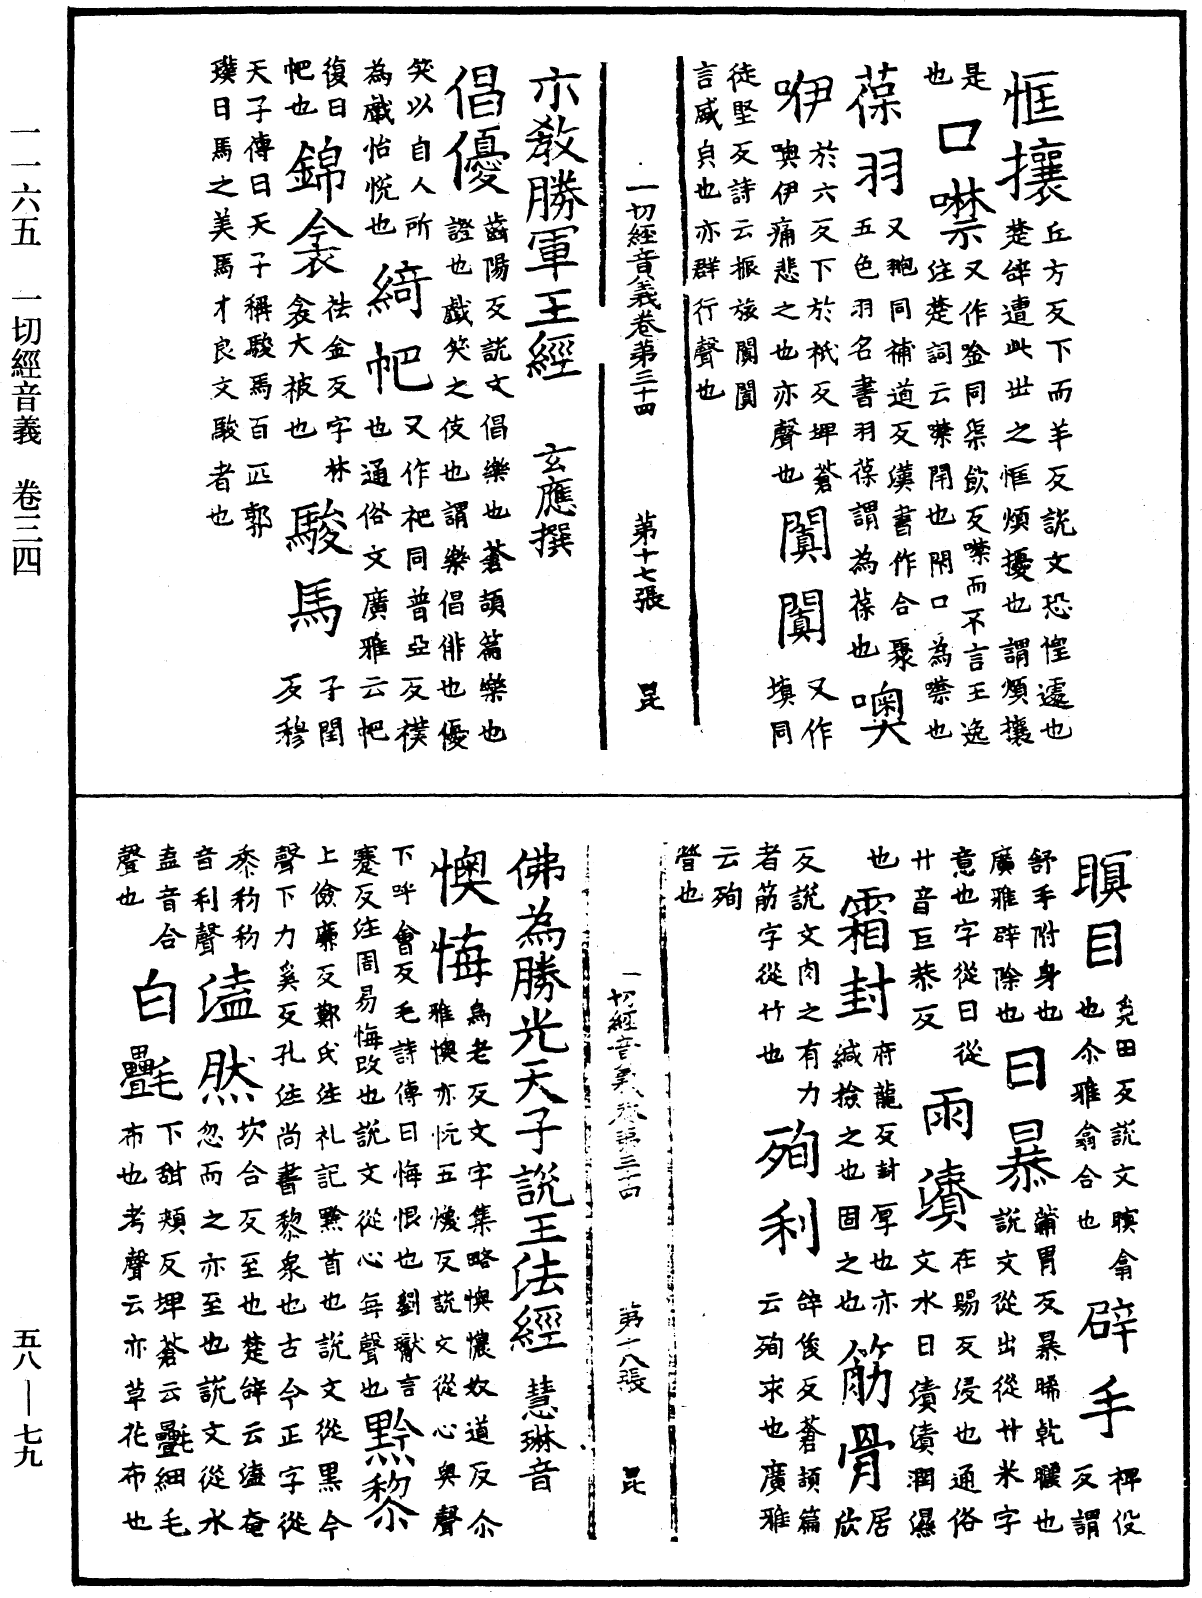 恇攘 丘方反下而羊反說文恐惶遽也
楚辞遭此世之恇煩擾也謂煩攘
是也 口噤 又作唫同渠飲反噤而不言王逸
注楚詞云噤閉也閉口為噤也
葆羽 又同補道反漢書作合聚
五色羽名書羽葆謂為葆也 噢
咿 於六反下於祇反埤蒼
噢伊痛悲之也亦聲也 闐闐 又作填同
徒堅反詩云振旅闐闐
言威皃也亦群行聲也
一切經音義卷第三十四 第十七張 昆
示教勝軍王經 玄應撰
倡優 齒陽反說文倡樂也蒼頡篇樂也
證也戲笑之伎也謂樂倡俳也優
笑以自人所
為戲怡悅也 綺帊 又作祀同普亞反襆
也通俗文廣雅云帊
復曰帊也 錦衾 祛金反字林
衾大被也 駿馬 子閏反穆
天子傳曰天子稱駿馬百匹郭
璞曰馬之美馬才良文駿者也
瞑目 田反說文瞑翕
也尒雅翕合也 辟手 裨役反謂
舒手附身也
廣雅辟除也 日暴 蒲冒反暴晞乾曬也
說文從出從廾米字
意也字從日從
廾音巨恭反 雨漬 在賜反浸也通俗
文水日漬漬潤濕
也 霜封 府龍反封厚也亦
緘撿之也固之也 筋骨 居欣
反說文肉之有力
者筋字從竹也 殉利 辞俊反蒼頡篇
云殉求也廣雅
云殉
營也
一切經音義卷第三十四 第十八張 昆
佛為勝光天子說王法經 慧琳音
懊悔 烏老反文字集略懊憹奴道反尒
雅懊亦忨五煥反說文從心奧聲
下呼會反毛詩傳曰悔恨也劉瓛言
蹇反注周易悔改也說文從心每聲也 黔黎
上儉廉反鄭氏注礼記黔首也說文從黑今
聲下力奚反孔注尚書黎衆也古今正字從
黍称称
音利聲 溘然 坎合反至也楚辞云溘奄
忽而之亦至也說文從水
盍音合
聲也 白㲲 下甜頰反埤蒼云㲲細毛
布也考聲云亦草花布也
一一六五 一切經音義 卷三四
五八—七九